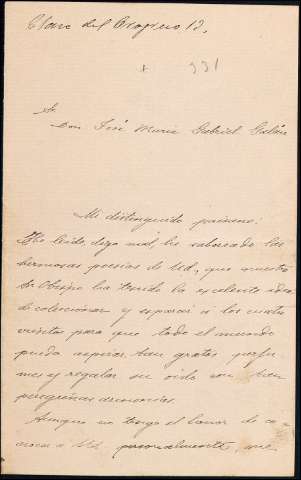 del 12.
+ 331
Sr.
Don José María Gabriel Galán
Mi distinguido paisano:
He leido, digo mal, he saboreado las
hermosas poesías de Ud., que nuestro
Sr. Obispo ha tenido la excelente idea
de coleccionar y esparcir a los cuatro
vientos para que todo el mundo
pueda aspirar tan gratos perfu-
mes y regalar su oido con tan
peregrinas armonías.
Aunque no tengo el honor de co-
nocer a Ud. personalmente, me